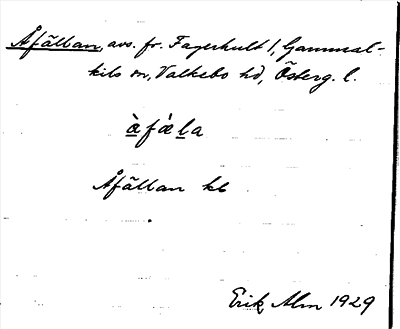 Åfällan, avs. fr. Fagerhult 1, Gammal-
kils sn, Valkebo hd, Österg. l.
à̱fá̱ḻa
Åfällan kb
Erik Alm 1929